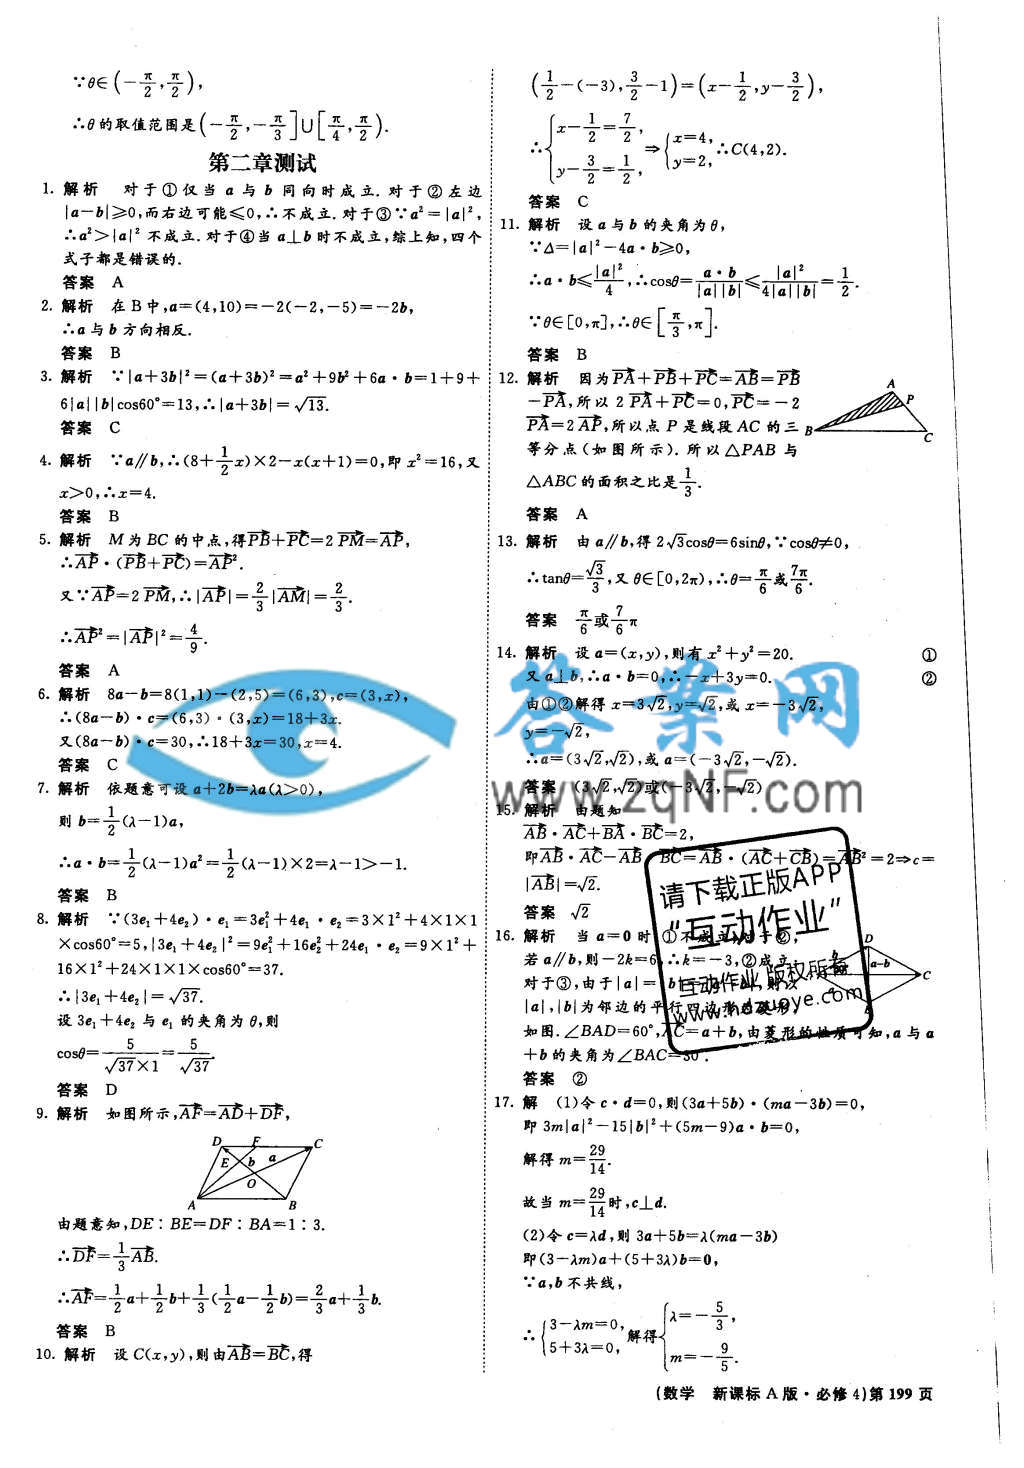 ∵θ∈(-π/2,π/2),
∴θ的取值范围是(-π/2,-π/3]∪[π/4,π/2).
第二章测试
1. 解析 对于①仅当 a 与 b 同向时成立.对于②左边
|a-b|≥0,而右边可能≤0,∴不成立.对于③∵a²=|a|²,
∴a²>|a|² 不成立.对于④当 a⊥b 时不成立,综上知,四个
式子都是错误的.
答案 A
2. 解析 在 B 中,a=(4,10)=-2(-2,-5)=-2b,
∴a 与 b 方向相反.
答案 B
3. 解析 ∵|a+3b|²=(a+3b)²=a²+9b²+6a·b=1+9+
6|a||b|cos60°=13,∴|a+3b|=√13.
答案 C
4. 解析 ∵a∥b,∴(8+1/2x)×2-x(x+1)=0,即 x²=16,又
x>0,∴x=4.
答案 B
5. 解析 M 为 BC 的中点,得PB+PC=2PM=AP,
∴AP·(PB+PC)=AP².
又∵AP=2PM,∴|AP|=2/3|AM|=2/3.
∴AP²=|AP|²=4/9.
答案 A
6. 解析 8a-b=8(1,1)-(2,5)=(6,3),c=(3,x),
∴(8a-b)·c=(6,3)·(3,x)=18+3x.
又(8a-b)·c=30,∴18+3x=30,x=4.
答案 C
7. 解析 依题意可设 a+2b=λa(λ>0),
则 b=1/2(λ-1)a,
∴a·b=1/2(λ-1)a²=1/2(λ-1)×2=λ-1>-1.
答案 B
8. 解析 ∵(3e₁+4e₂)·e₁=3e₁²+4e₁·e₂=3×1²+4×1×1
×cos60°=5,|3e₁+4e₂|²=9e₁²+16e₂²+24e₁·e₂=9×1²+
16×1²+24×1×1×cos60°=37.
∴|3e₁+4e₂|=√37.
设 3e₁+4e₂ 与 e₁ 的夹角为 θ,则
cosθ=5/(√37×1)=5/√37.
答案 D
9. 解析 如图所示,AF=AD+DF,
D F C
E b a
O
A B
由题意知,DE∶BE=DF∶BA=1∶3.
∴DF=1/3AB.
∴AF=1/2a+1/2b+1/3(1/2a-1/2b)=2/3a+1/3b.
答案 B
10. 解析 设 C(x,y),则由AB=BC,得
(1/2-(-3),3/2-1)=(x-1/2,y-3/2),
∴{x-1/2=7/2, y-3/2=1/2, ⇒{x=4, y=2, ∴C(4,2).
答案 C
11. 解析 设 a 与 b 的夹角为 θ,
∵Δ=|a|²-4a·b≥0,
∴a·b≤|a|²/4,∴cosθ=a·b/|a||b|≤|a|²/4|a||b|=1/2.
∵θ∈[0,π],∴θ∈[π/3,π].
答案 B
12. 解析 因为PA+PB+PC=AB=PB
-PA,所以 2PA+PC=0,PC=-2
PA=2AP,所以点 P 是线段 AC 的三
等分点(如图所示).所以△PAB 与
△ABC 的面积之比是1/3.
A
P
B
C
答案 A
13. 解析 由 a∥b,得 2√3cosθ=6sinθ,∵cosθ≠0,
∴tanθ=√3/3,又 θ∈[0,2π),∴θ=π/6或7π/6.
答案 π/6或7/6π
14. 解析 设 a=(x,y),则有 x²+y²=20. ①
又 a⊥b,∴a·b=0,∴-x+3y=0. ②
由①②解得 x=3√2,y=√2,或 x=-3√2,
y=-√2,
∴a=(3√2,√2),或 a=(-3√2,-√2).
答案 (3√2,√2)或(-3√2,-√2)
15. 解析 由题知
AB·AC+BA·BC=2,
即AB·AC-AB·BC=AB·(AC+CB)=AB²=2⇒c=
|AB|=√2.
答案 √2
16. 解析 当 a=0 时,①不成立;对于②,
若 a∥b,则-2k=6,∴k=-3,②成立;
对于③,由于|a|=|b|=|a-b|,则以
|a|,|b|为邻边的平行四边形为菱形,
如图.∠BAD=60°,AC=a+b,由菱形的性质可知,a 与 a
+b 的夹角为∠BAC=30°.
D
a-b
C
b
答案 ②
17. 解 (1)令 c·d=0,则(3a+5b)·(ma-3b)=0,
即 3m|a|²-15|b|²+(5m-9)a·b=0,
解得 m=29/14.
故当 m=29/14时,c⊥d.
(2)令 c=λd,则 3a+5b=λ(ma-3b)
即(3-λm)a+(5+3λ)b=0,
∵a,b 不共线,
∴{3-λm=0, 5+3λ=0, 解得{λ=-5/3, m=-9/5.
(数学 新课标 A 版·必修 4)第 199 页
答案网
www.zqNF.com
请下载正版APP
“互动作业”
互动作业 版权所有
www.hdzuoye.com